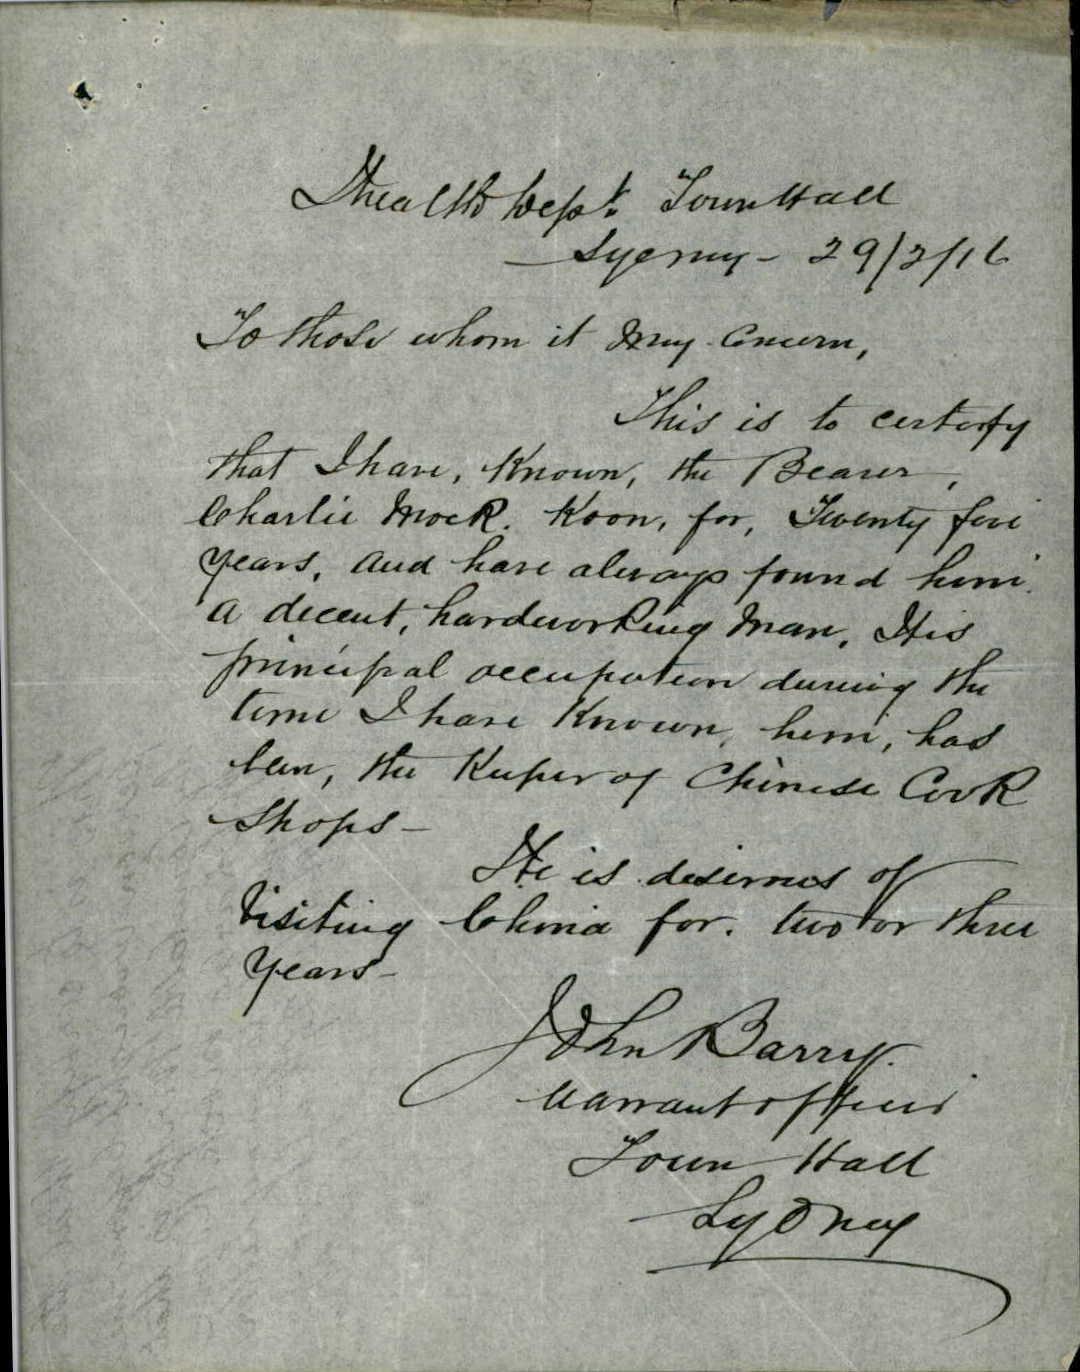 Health Dept. Town Hall
Sydney - 29/2/16
To those whom it may Concern,
This is to certify
that I have, Known, the Bearer,
Charlie Mock. Koon, for, Twenty five
years, and have always found him
a decent, hardworking man, His
principal occupation during the
time I have Known, him, has
been, the Keeper of Chinese Cook
Shops -
He is desirous of
Visiting China for. two or three
Years -
John Barry.
Warrant officer
Town Hall
Sydney